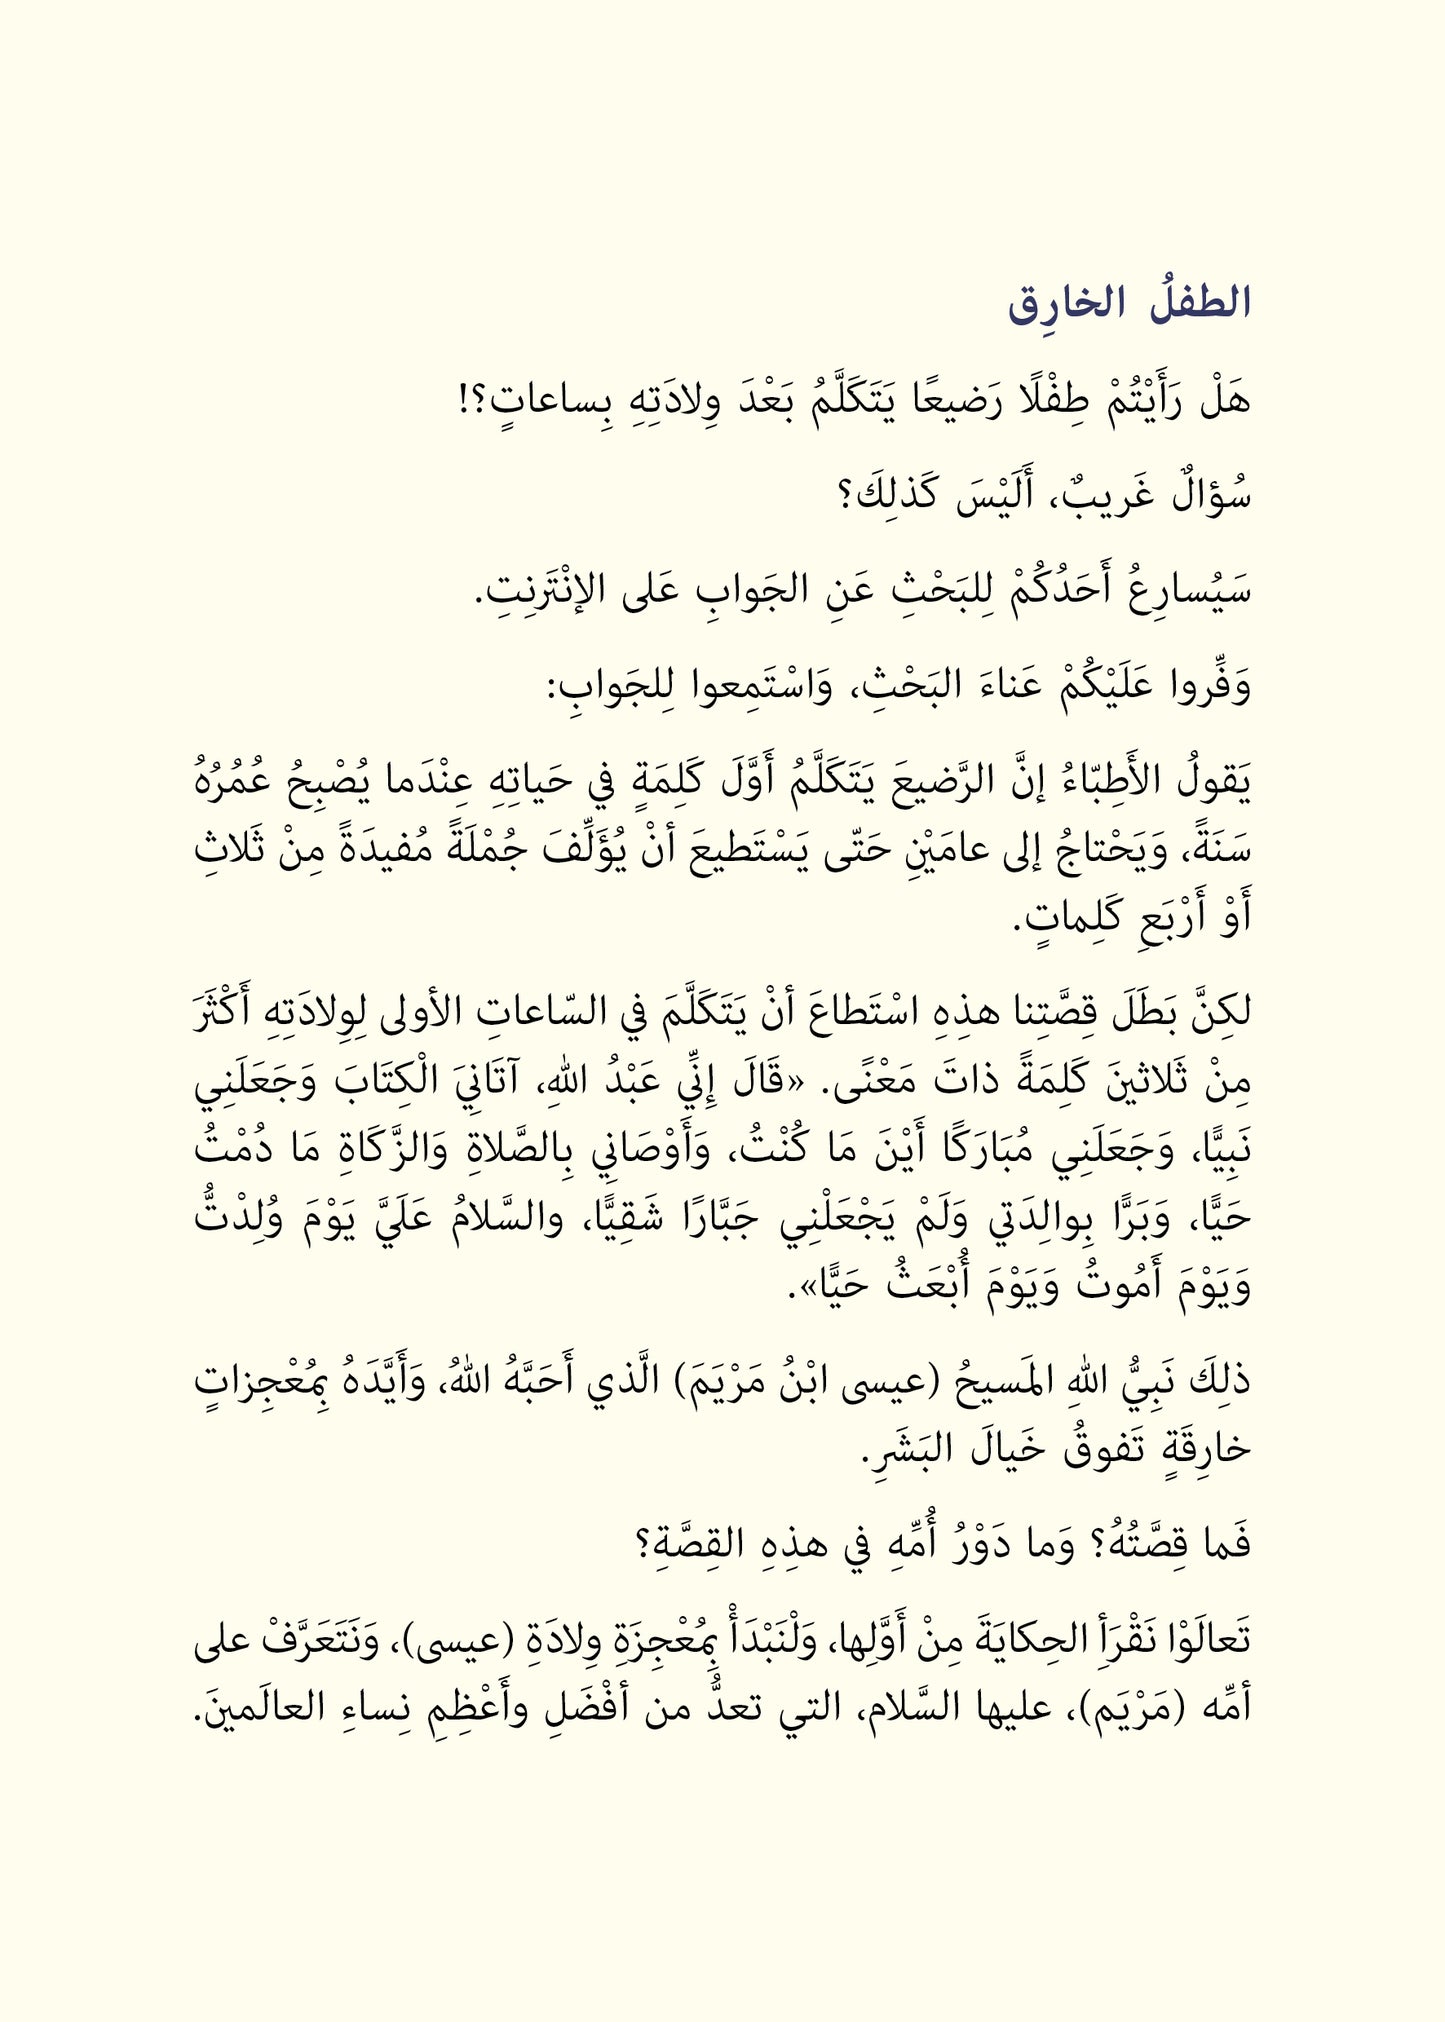 الطفلُ الخارِق
هَلْ رَأَيْتُمْ طِفْلًا رَضيعًا يَتَكَلَّمُ بَعْدَ وِلادَتِهِ بِساعاتٍ؟!
سُؤالٌ غَريبٌ، أَلَيْسَ كَذلِكَ؟
سَيُسارِعُ أَحَدُكُمْ لِلبَحْثِ عَنِ الجَوابِ عَلى الإنْتَرنِتِ.
وَفِّروا عَلَيْكُمْ عَناءَ البَحْثِ، وَاسْتَمِعوا لِلجَوابِ:
يَقولُ الأَطِبّاءُ إنَّ الرَّضيعَ يَتَكَلَّمُ أَوَّلَ كَلِمَةٍ في حَياتِهِ عِنْدَما يُصْبِحُ عُمُرُهُ
سَنَةً، وَيَحْتاجُ إلى عامَيْنِ حَتّى يَسْتَطيعَ أنْ يُؤَلِّفَ جُمْلَةً مُفيدَةً مِنْ ثَلاثِ
أَوْ أَرْبَعِ كَلِماتٍ.
لكِنَّ بَطَلَ قِصَّتِنا هذِهِ اسْتَطاعَ أنْ يَتَكَلَّمَ في السّاعاتِ الأولى لِوِلادَتِهِ أَكْثَرَ
مِنْ ثَلاثينَ كَلِمَةً ذاتَ مَعْنًى. «قَالَ إِنِّي عَبْدُ اللهِ، آتَانِيَ الْكِتَابَ وَجَعَلَنِي
نَبِيًّا، وَجَعَلَنِي مُبَارَكًا أَيْنَ مَا كُنْتُ، وَأَوْصَانِي بِالصَّلاةِ وَالزَّكَاةِ مَا دُمْتُ
حَيًّا، وَبَرًّا بِوالِدَتي وَلَمْ يَجْعَلْنِي جَبَّارًا شَقِيًّا، والسَّلامُ عَلَيَّ يَوْمَ وُلِدْتُّ
وَيَوْمَ أَمُوتُ وَيَوْمَ أُبْعَثُ حَيًّا».
ذلِكَ نَبِيُّ اللهِ المَسيحُ (عيسى ابْنُ مَرْيَمَ) الَّذي أَحَبَّهُ اللهُ، وَأَيَّدَهُ بِمُعْجِزاتٍ
خارِقَةٍ تَفوقُ خَيالَ البَشَرِ.
فَما قِصَّتُهُ؟ وَما دَوْرُ أُمِّهِ في هذِهِ القِصَّةِ؟
تَعالَوْا نَقْرَأِ الحِكايَةَ مِنْ أَوَّلِها، وَلْنَبْدَأْ بِمُعْجِزَةِ وِلادَةِ (عيسى)، وَنَتَعَرَّفْ على
أمِّه (مَرْيَم)، عليها السَّلام، التي تعدُّ من أفْضَلِ وأَعْظِمِ نِساءِ العالَمينَ.